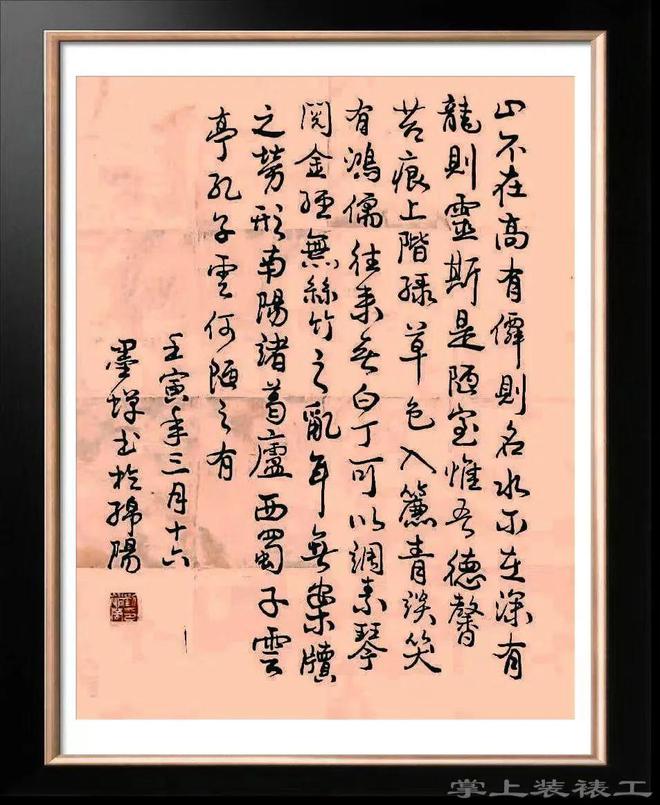 山不在高有僊則名水不在深有
龍則靈斯是陋室惟吾德馨
苔痕上階緑草色入簾青談笑
有鴻儒往來無白丁可以調素琴
閲金經無絲竹之亂耳無案牘
之勞形南陽諸葛廬西蜀子雲
亭孔子雲何陋之有
壬寅年三月十六
墨书於綿陽
掌上装裱工